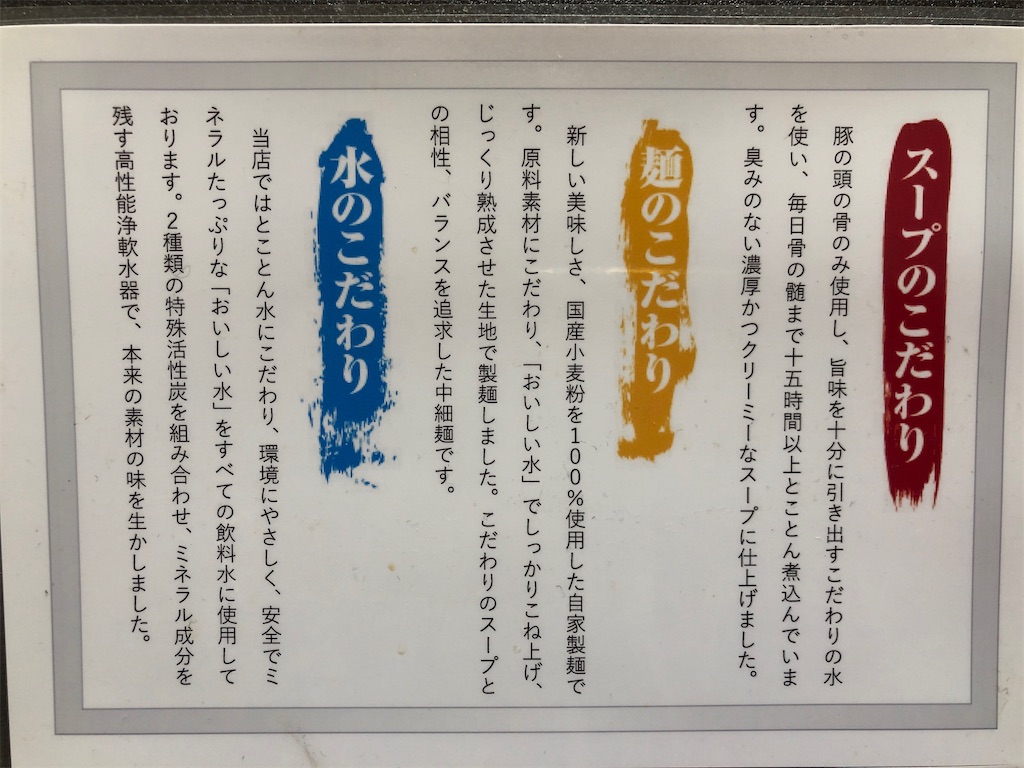 スープのこだわり
豚の頭の骨のみ使用し、旨味を十分に引き出すこだわりの水
を使い、毎日骨の髄まで十五時間以上とことん煮込んでいま
す。臭みのない濃厚かつクリーミーなスープに仕上げました。
麺のこだわり
新しい美味しさ、国産小麦粉を100%使用した自家製麺で
す。原料素材にこだわり、「おいしい水」でしっかりこね上げ、
じっくり熟成させた生地で製麺しました。こだわりのスープと
の相性、バランスを追求した中細麺です。
水のこだわり
当店ではとことん水にこだわり、環境にやさしく、安全でミ
ネラルたっぷりな「おいしい水」をすべての飲料水に使用して
おります。2種類の特殊活性炭を組み合わせ、ミネラル成分を
残す高性能浄軟水器で、本来の素材の味を生かしました。